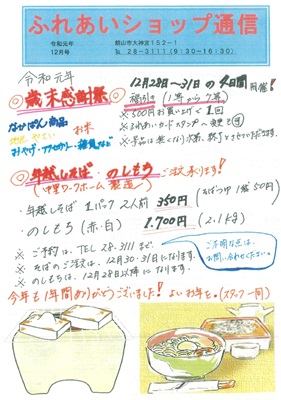 ふれあいショップ通信
令和元年
12月号
館山市大神宮152-1
℡ 28-3111(9:30~16:30)
令和元年
12月28日~31日の4日間開催!
◎歳末感謝祭
福引き(1等から7等)
※500円お買い上げで1回
なかぱん商品
※ふれあいカードスタンプへ
お米
※景品は無くなり次第、終了とさせて
おみやげ・アクセサリー・雑貨など
◎年越しそば、のしもち ご注文承ります!
(中里ワークホーム製造)
・年越しそば 1パック2人前 350円(そばつゆ1袋50円)
・のしもち(赤・白) 1,700円(2.1kg)
※ご予約は、TEL 28-3111まで。
※そばのご注文は、12月30・31日になります。
※のしもちは、12月28日以降になります。
ご不明な点は、
お問い合わせください。
今年も1年間ありがとうございました! よいお年を。(スタッフ一同)